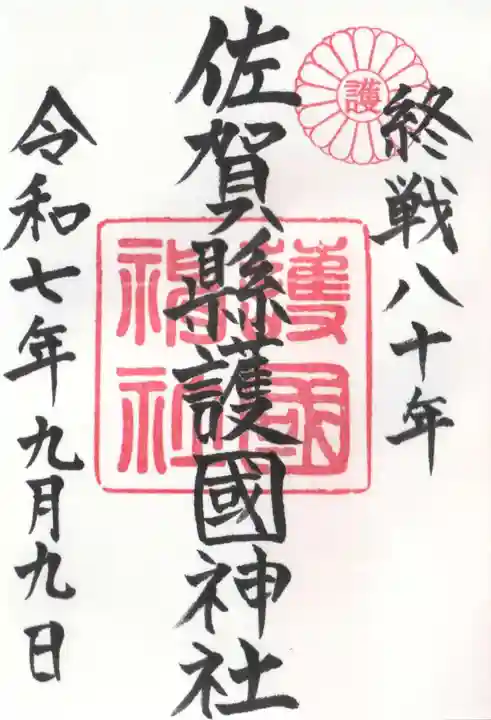 終戦八十年
護
佐賀縣護國神社
護國
神社
令和七年九月九日